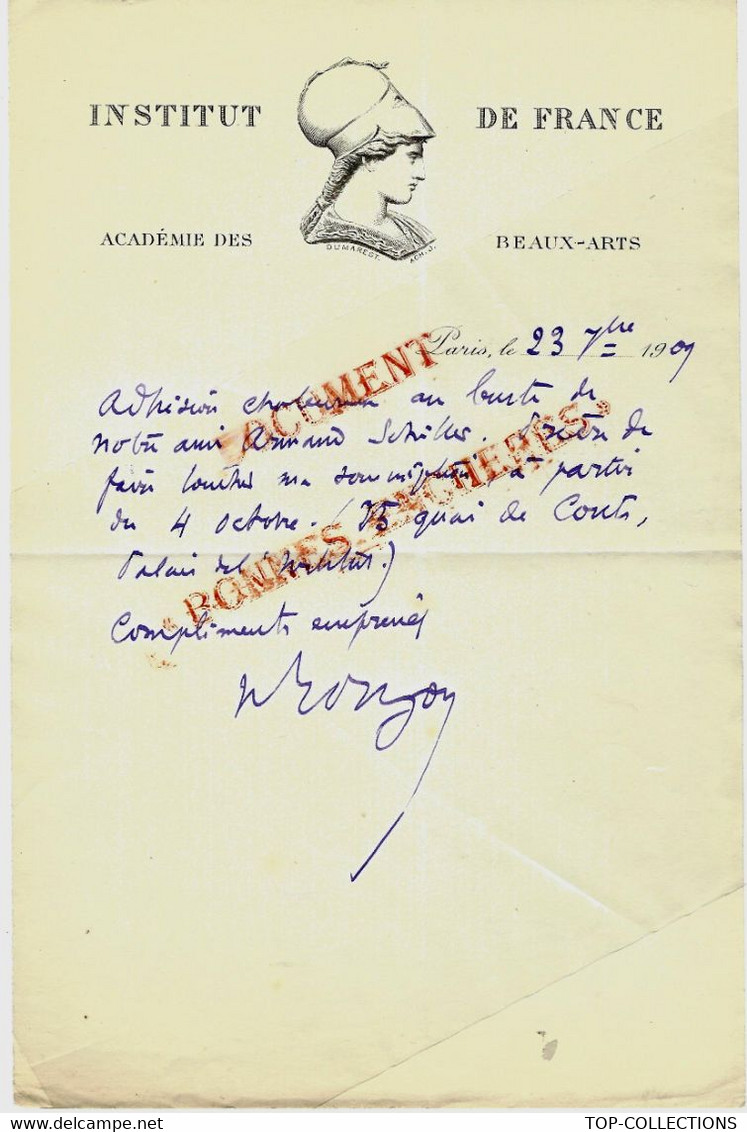 INSTITUT DE FRANCE
ACADÉMIE DES BEAUX-ARTS
DUMAREST.
Paris, le 23 7bre 1909
Adhésion chaleureuse au buste de
notre ami Armand Schiller. Prière de
faire toucher ma souscription à partir
du 4 octobre. (25 quai de Conti,
Palais de l'Institut.)
Compliments empressés
DOCUMENT
"BONNES ENCHERES"
TOP-COLLECTIONS